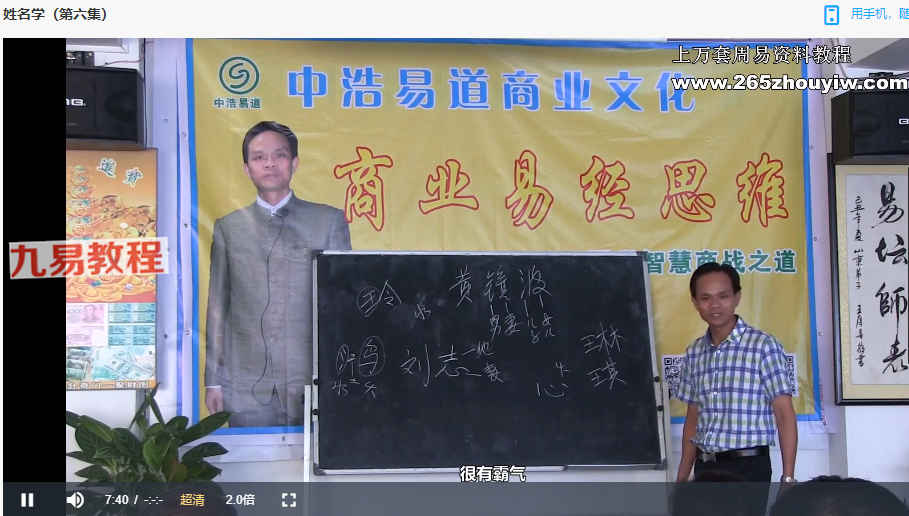 姓名学（第六集）
用手机，随
上万套周易资料教程
www.265zhouyiw.com
中浩易道
中浩易道商业文化
商业易经思维
智慧商战之道
九易教程
易坛師表
玲
黄镇波
水
刘志
心
琳
琪
很有霸气
7:40 / -:-:-
超清
2.0倍